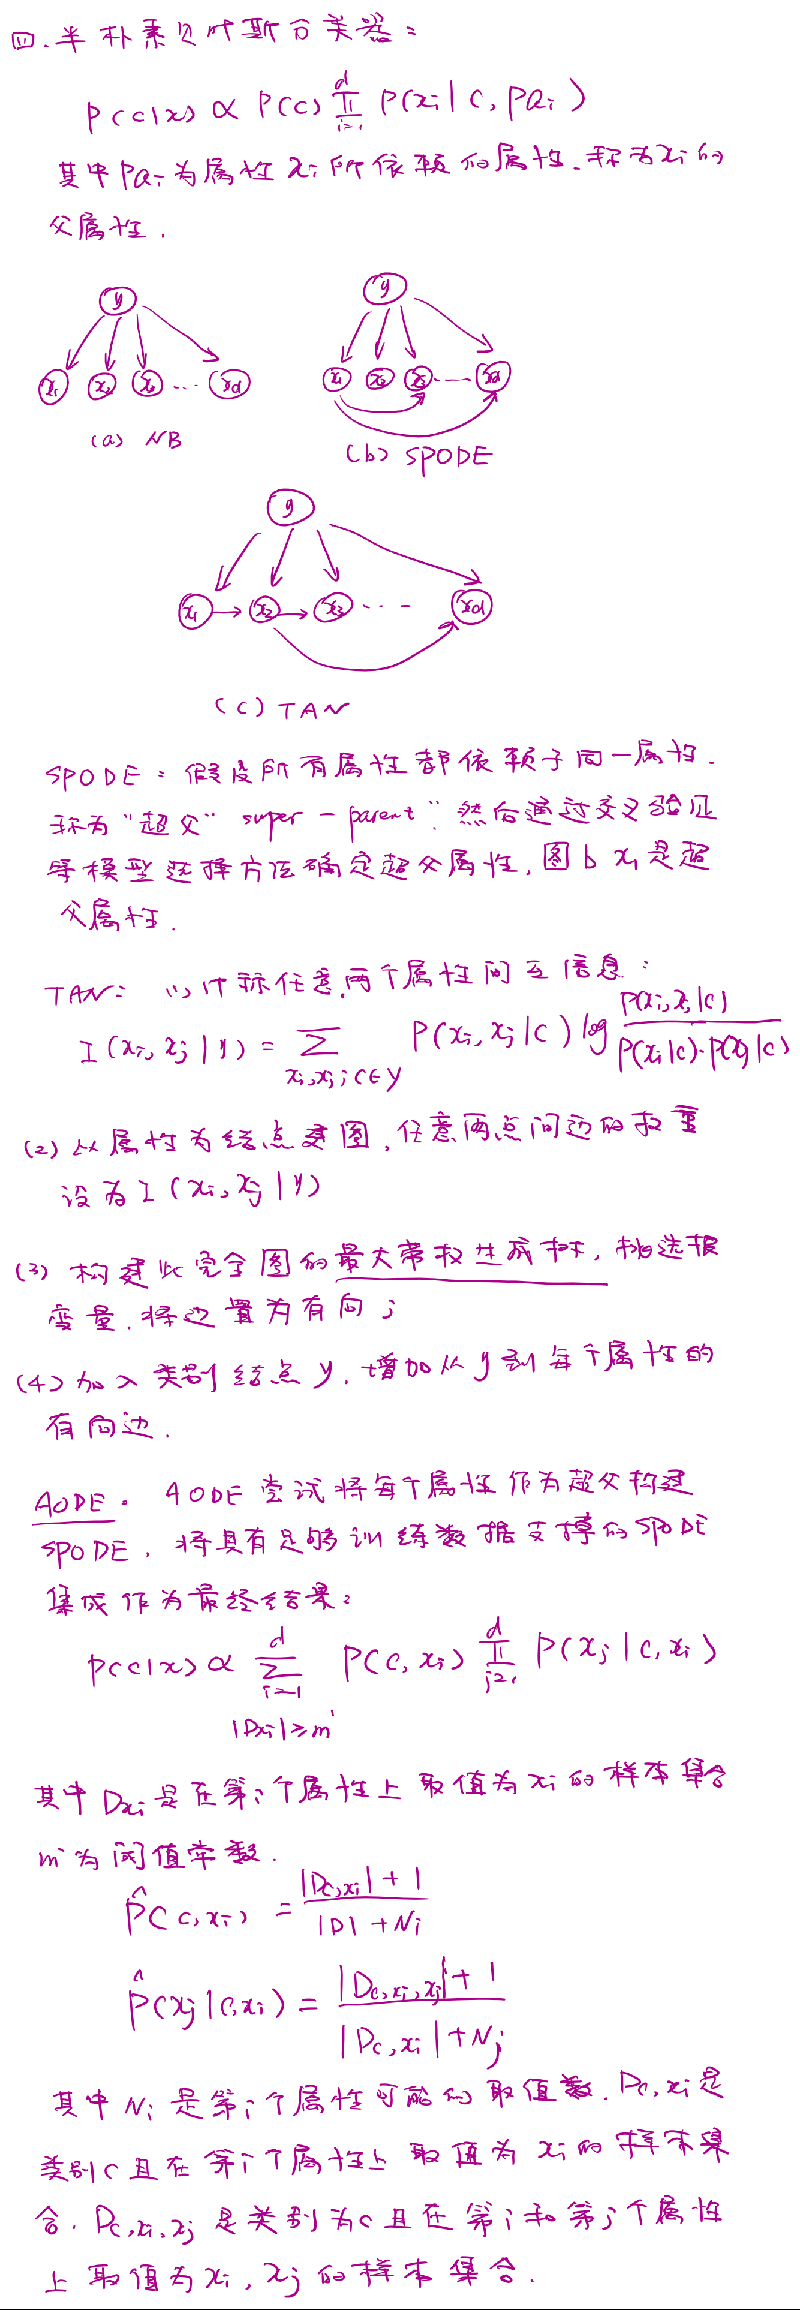 四.半朴素贝叶斯分类器:
P(c|x) ∝ P(c) ∏_{i=1}^{d} P(x_i | c, pa_i)
其中pa_i为属性x_i所依赖的属性.称为x_i的
父属性.
y y
x_1 x_2 x_3 ... x_d x_1 x_2 x_3 ... x_d
(a) NB (b) SPODE
y
x_1 x_2 x_3 ... x_d
(c) TAN
SPODE: 假设所有属性都依赖于同一属性.
称为"超父" super-parent". 然后通过交叉验证
等模型选择方法确定超父属性, 图b x_1是超
父属性.
TAN: (1)计称任意两个属性间互信息:
I(x_i, x_j | y) = Σ_{x_i,x_j;c∈y} P(x_i, x_j | c) log P(x_i,x_j|c) / P(x_i|c)·P(x_j|c)
(2) 以属性为结点建图, 任意两点间边的权重
设为I(x_i, x_j | y)
(3) 构建此完全图的最大带权生成树, 挑选根
变量, 将边置为有向;
(4) 加入类别结点y, 增加从y到每个属性的
有向边.
AODE. AODE尝试将每个属性作为超父构建
SPODE, 将具有足够训练数据支撑的SPODE
集成作为最终结果:
P(c|x) ∝ Σ_{i=1}^{d} P(c, x_i) ∏_{j=1}^{d} P(x_j | c, x_i)
|D_{x_i}| ≥ m'
其中D_{x_i}是在第i个属性上取值为x_i的样本集合
m'为阈值常数.
P̂(c, x_i) = |D_{c,x_i}| + 1 / |D| + N_i
P̂(x_j | c, x_i) = |D_{c,x_i,x_j}| + 1 / |D_{c,x_i}| + N_j
其中N_i是第i个属性可能的取值数. D_{c,x_i}是
类别c且在第i个属性上取值为x_i的样本集
合. D_{c,x_i,x_j}是类别为c且在第i和第j个属性
上取值为x_i, x_j的样本集合.